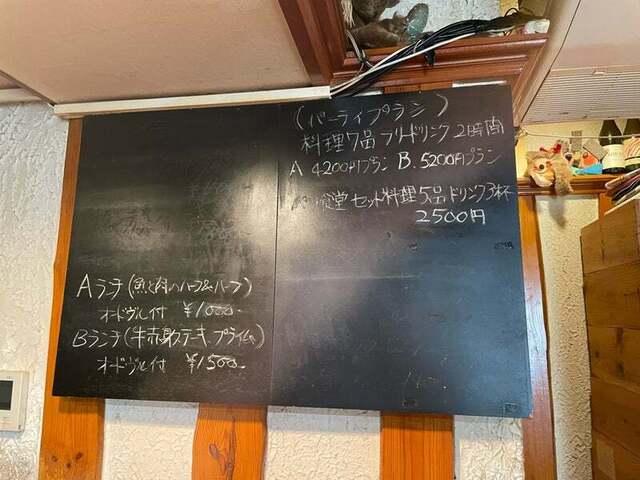 (パーティプラン)
料理7品 フリードリンク 2時間
A 4200円プラン B. 5200円プラン
食堂セット料理5品ドリンク3杯
2500円
Aランチ(魚と肉のハーフ&ハーフ)
オードヴル付 ¥1000-
Bランチ(牛赤身ステーキ、プライム)
オードヴル付 ¥1500-